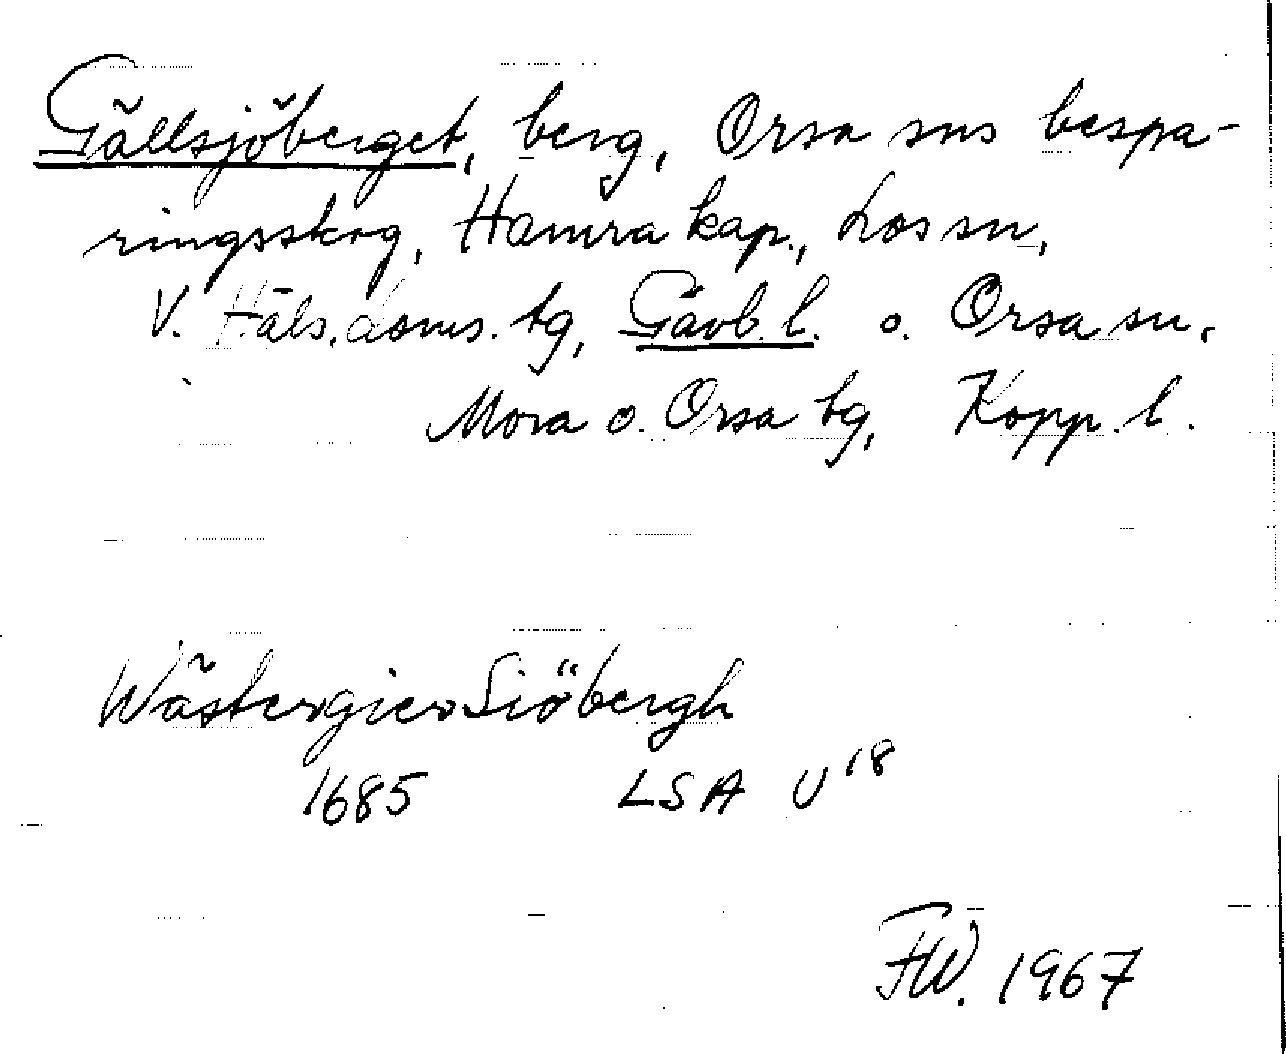 Gällsjöberget, berg, Orsa sns bespa-
ringsskog, Hamra kap., Los sn,
V. Häls. doms. tg, Gävb. l. o. Orsa sn,
Mora o. Orsa tg, Kopp. l.
Wästergier Siöbergh
1685 LSA U18
FW. 1967